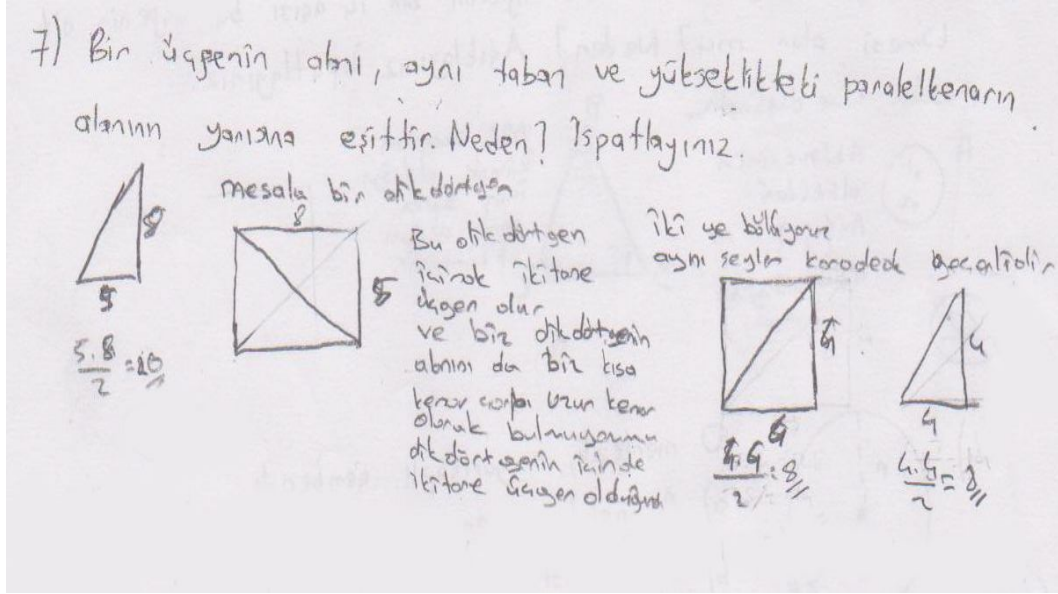 7) Bir üçgenin alanı, aynı taban ve yükseklikteki paralelkenarın
alanının yarısına eşittir. Neden? İspatlayınız.
mesala bir dikdörtgen
8
5
8
5
5.8/2=20
Bu dikdörtgen
iki tane
üçgen olur
ve biz dikdörtgenin
alanını da biz kısa
kenar çarpı uzun kenar
olarak bulmuyormu
dikdörtgenin içinde
iki tane üçgen olduğuna
iki ye bölüyoruz
aynı şeyler karedede geçerlidir
4
4
4.4/2=8
4
4
4.4/2=8